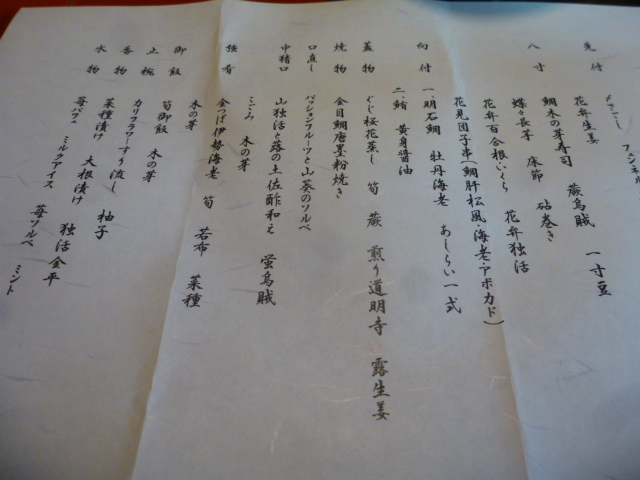 先付
フェンネル
花弁生姜 蕨烏賊 一寸豆
八寸
鯛木の芽寿司 床節 砧巻き
蝶々長芋
花弁百合根いくら 花弁独活
花見団子串(鯛肝松風・海老・アボカド)
向付
一、明石鯛 牡丹海老 あしらい一式
二、鮪 黄身醤油
蓋物
ぐじ桜花蒸し 筍 蕨 煎り道明寺 露生姜
焼物
金目鯛唐墨粉焼き
口直し
パッションフルーツと山葵のソルベ
中猪口
山独活と蕗の土佐酢和え 蛍烏賊
木の芽
強肴
金つば伊勢海老 筍 若布 菜種
木の芽
御飯
筍御飯 木の芽
止椀
カリフラワーすり流し 柚子
香物
菜種漬け 大根漬け 独活金平
水物
苺パフェ ミルクアイス 苺ソルベ ミント